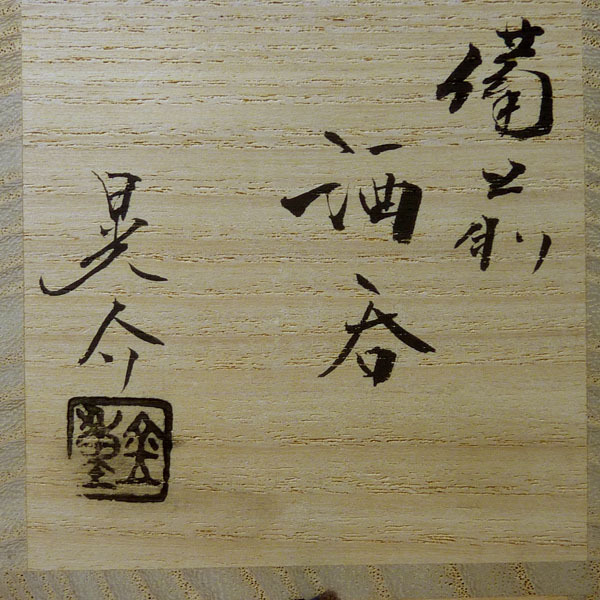 備前
酒呑
晃介